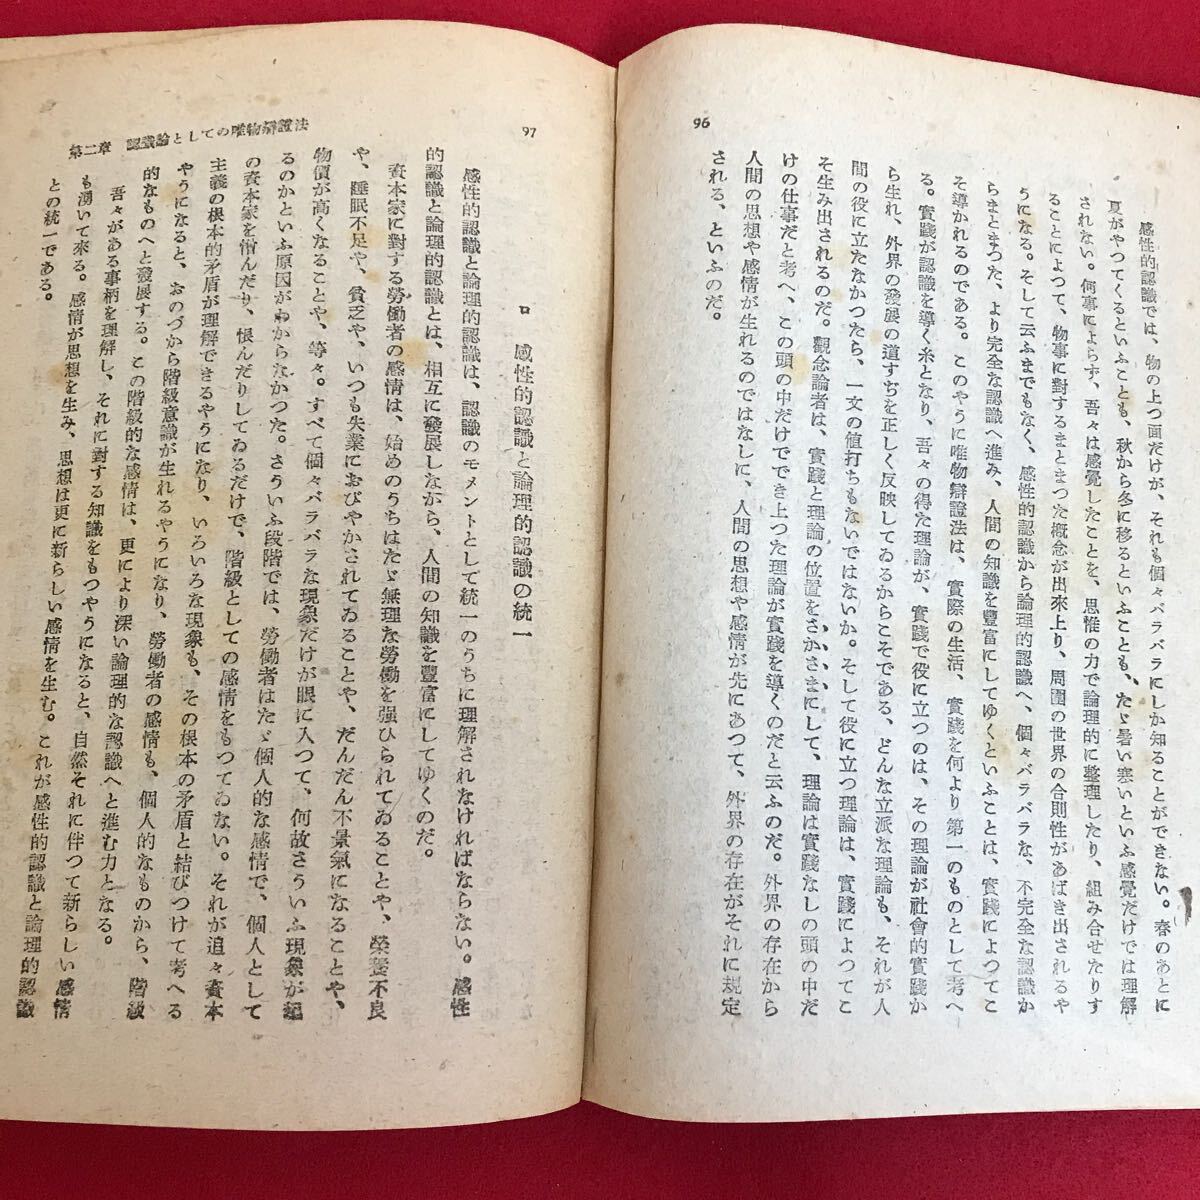 96
感性的認識では、物の上つ面だけが、それも個々バラバラにしか知ることができない。春のあとに
夏がやつてくるといふことも、秋から冬に移るといふことも、たゞ暑い寒いといふ感覺だけでは理解
されない。何事によらず、吾々は感覺したことを、思惟の力で論理的に整理したり、組み合せたりす
ることによつて、物事に對するまとまつた概念が出來上り、周圍の世界の合則性があばき出されるや
うになる。そして云ふまでもなく、感性的認識から論理的認識へ、個々バラバラな、不完全な認識か
らまとまつた、より完全な認識へ進み、人間の知識を豐富にしてゆくといふことは、實踐によつてこ
そ導かれるのである。このやうに唯物辯證法は、實際の生活、實踐を何より第一のものとして考へ
る。實踐が認識を導く糸となり、吾々の得た理論が、實踐で役に立つのは、その理論が社會的實踐か
ら生れ、外界の發展の道すぢを正しく反映してゐるからこそである、どんな立派な理論も、それが人
間の役に立たなかつたら、一文の値打ちもないではないか。そして役に立つ理論は、實踐によつてこ
そ生み出されるのだ。觀念論者は、實踐と理論の位置をさかさまにして、理論は實踐なしの頭の中だ
けの仕事だと考へ、この頭の中だけででき上つた理論が實踐を導くのだと云ふのだ。外界の存在から
人間の思想や感情が生れるのではなしに、人間の思想や感情が先にあつて、外界の存在がそれに規定
される、といふのだ。
97
第二章　認識論としての唯物辯證法
ロ　感性的認識と論理的認識の統一
感性的認識と論理的認識は、認識のモメントとして統一のうちに理解されなければならない。感性
的認識と論理的認識とは、相互に發展しながら、人間の知識を豐富にしてゆくのだ。
資本家に對する勞働者の感情は、始めのうちはたゞ無理な勞働を强ひられてゐることや、榮養不良
や、睡眠不足や、貧乏や、いつも失業におびやかされてゐることや、だんだん不景氣になることや、
物價が高くなることや、等々。すべて個々バラバラな現象だけが眼に入つて、何故さういふ現象が起
るのかといふ原因がわからなかつた。さういふ段階では、勞働者はたゞ個人的な感情で、個人として
の資本家を憎んだり、恨んだりしてゐるだけで、階級としての感情をもつてゐない。それが追々資本
主義の根本的矛盾が理解できるやうになり、いろいろな現象も、その根本の矛盾と結びつけて考へる
やうになると、おのづから階級意識が生れるやうになり、勞働者の感情も、個人的なものから、階級
的なものへと發展する。この階級的な感情は、更により深い論理的な認識へと進む力となる。
吾々がある事柄を理解し、それに對する知識をもつやうになると、自然それに伴つて新らしい感情
も湧いて來る。感情が思想を生み、思想は更に新らしい感情を生む。これが感性的認識と論理的認識
との統一である。